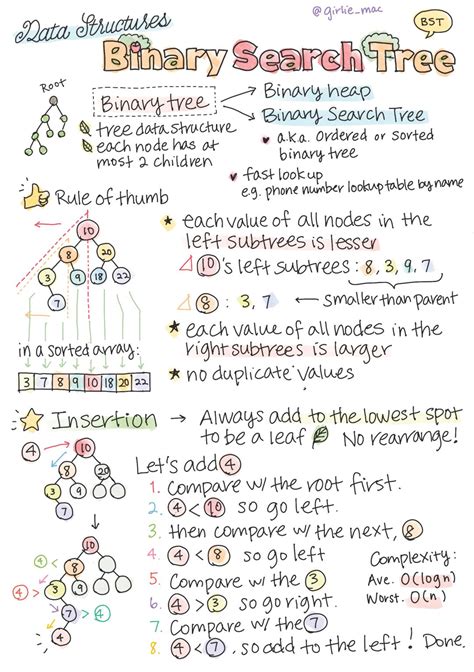 @girlie_mac
Data Structures
BST
Binary Search Tree
Root
Binary tree
Binary heap
Binary Search Tree
tree data structure
each node has at
most 2 children
a.k.a. Ordered or Sorted
binary tree
fast look up
e.g. phone number lookup table by name
Rule of thumb
10
8 20
3 9 18 22
7
in a sorted array:
3 7 8 9 10 18 20 22
each value of all nodes in the
left subtrees is lesser
10's left subtrees: 8, 3, 9, 7
8 : 3, 7 ← smaller than parent
each value of all nodes in the
right subtrees is larger
no duplicate values
Insertion → Always add to the lowest spot
to be a leaf No rearrange!
4 10
8 20
3
7
10
4 < 8
3 < 4
7 > 4
4
Let's add 4
1. Compare w/ the root first.
2. 4 < 10 so go left.
3. then compare w/ the next, 8
4. 4 < 8 so go left
5. Compare w/ the 3
6. 4 > 3 so go right.
7. Compare w/ the 7
8. 4 < 7, so add to the left! Done.
Complexity:
Ave. O(log n)
Worst. O(n)